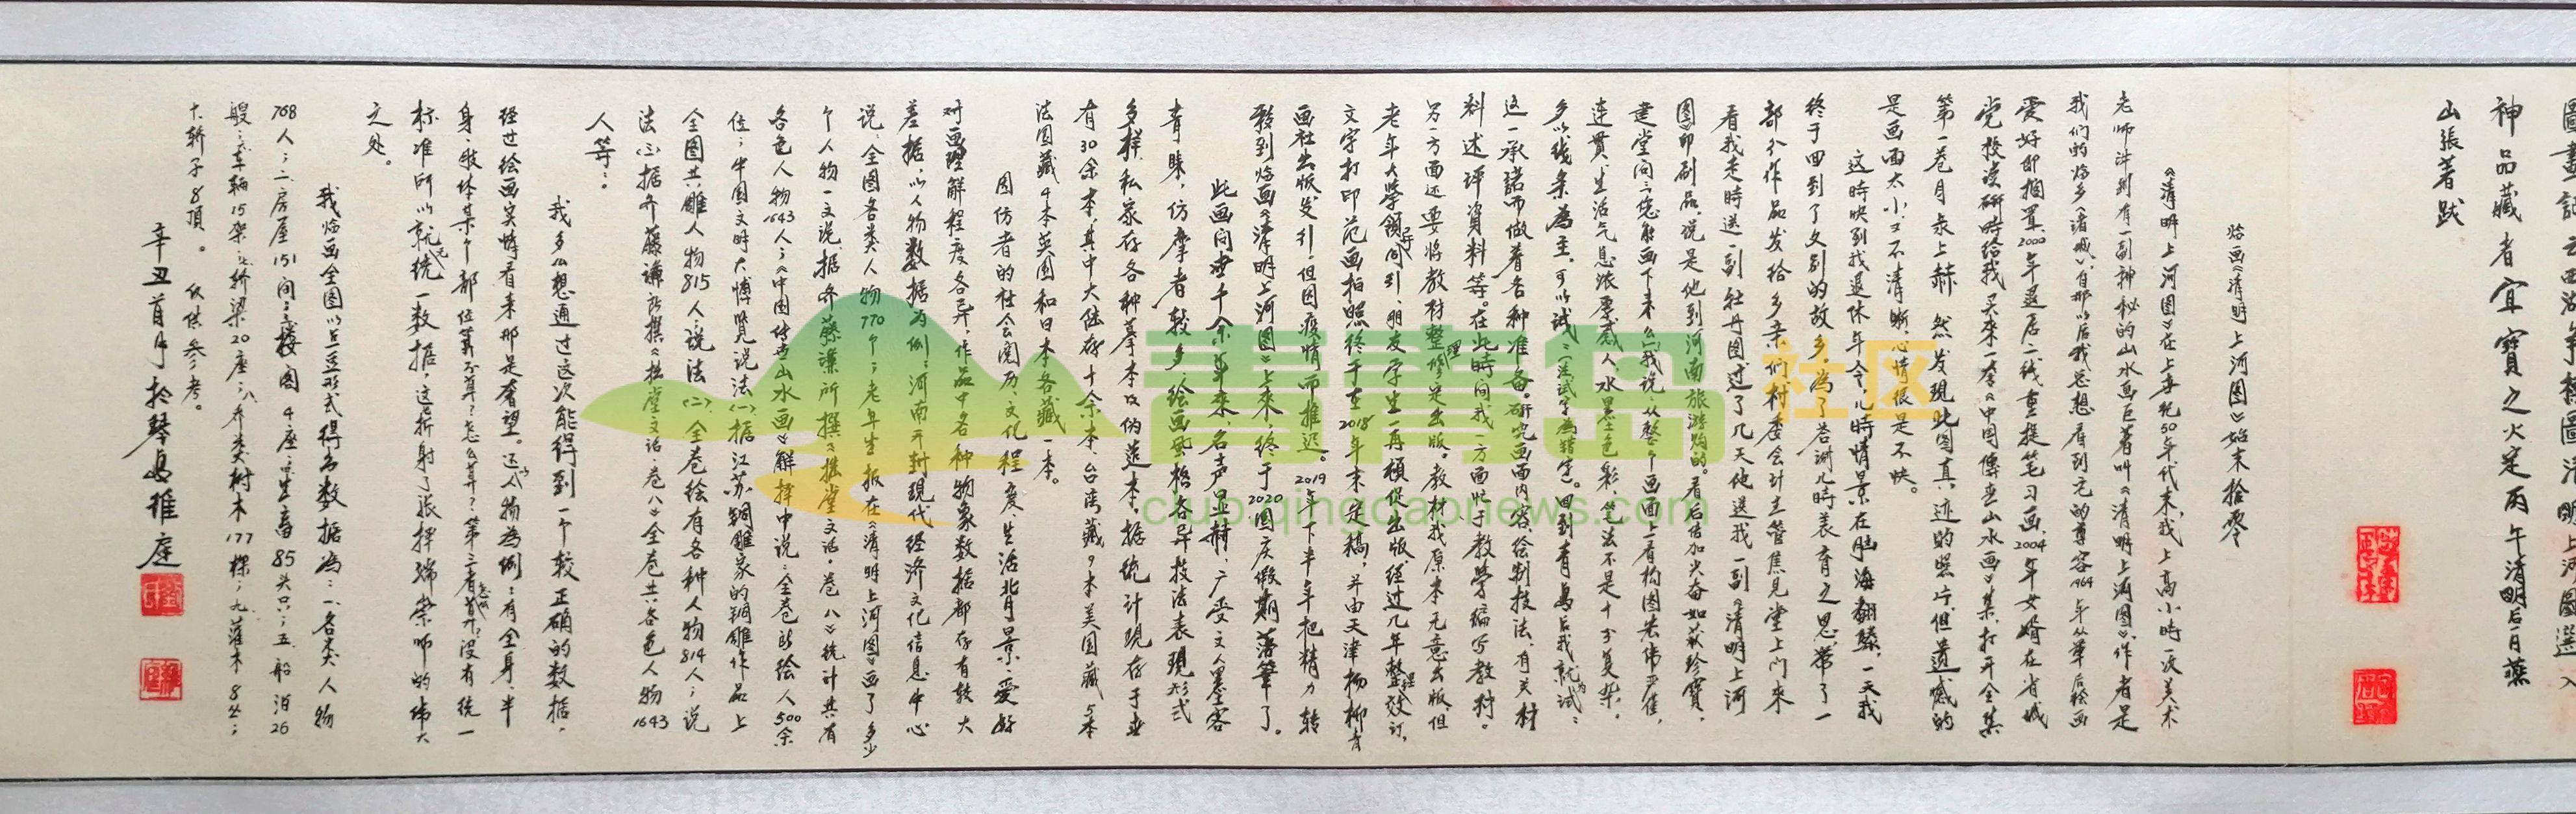 神品藏者宜寶之火定丙午清明后一日燕
山張著跋
临画《清明上河图》始末拾零
《清明上河图》在上世纪50年代末,我上高小时一次美术
老师讲到有一副神秘的山水画巨著叫《清明上河图》,作者是
我们的临乡(诸城)有那以后我总想看到它的尊容1964年从军后绘画
爱好即搁置.2000年退居二线重提笔习画.2004年女婿在省城
党校读研时给我买来一套《中国传世山水画》集.打开全集
第一卷目录上赫然发现此图真迹的照片.但遗憾的
是画面太小又不清晰.心情很是不快。
这时映到我退休年令,儿时情景在脑海翻腾,一天我
终于回到了久别的故乡.為了答谢儿時养育之思,带了一
部分作品发给乡亲们.村委会计主管焦见堂上门来
看我.走時送一副牡丹图,过了几天他送我一副《清明上河
图》印刷品.说是他到河南旅游购的.看后倍加兴奋如获珍寶,
建堂问:您能画下来么,我说:从整个画面上看构图宏伟严佳,
连贯.生活气息浓厚感人.水墨色彩.笔法不是十分复杂,
多以线条為主.可以试:
这一承諾而做着各种准备.研究画面内容.绘制技法.有关材
料述评資料等。在此時间我一方面忙于教學編写教材。
另一方面还要将教材整理修定出版.教材我原本无意出版.但
老年大學領导同引.朋友学生一再頻促出版.经过几年整理效订,
文字打印范画拍照终于在2018年末定稿,并由天津杨柳青
画社出版发引.但因疫情而推迟。2019年下半年把精力转
移到临画《清明上河图》上来.终于2020国庆假期落筆了。
此画问世千余年来,名声显赫,广受文人墨客
青睐,仿摩者较多,绘画風格各异,技法表現形式
多样.私家存各种摹本及伪造本.据统计現存于世
有30余本,其中大陆存十余本.台湾藏9本.美国藏5本
法国藏4本英国和日本各藏一本。
因仿者的社会阅历.文化程度.生活背景.爱好
对画理解程度各异.作品中各种物象数据都存有较大
差据.以人物数据为例:河南开封现代经济文化信息中心
说:全图各类人物770个;老年生报在《清明上河图》画了多少
个人物一文说.据齐藤谦所撰《拙堂文话.卷八》统计共有
各色人物1643人;《中国传世山水画》解择中说:全卷所绘人500余
位;中国文明大博览说法(一)据江苏铜雕家的铜雕作品上
全图共雕人物815人;说法(二)全卷绘有各种人物814人;说
法(三)据齐藤谦所撰《拙堂文话.卷八》全卷共各色人物1643
人等:。
我多么想通过这次能得到一个较正确的数据,
经过绘画实情看来那是奢望。还以人物為例:有全身、半
身.肢体某个部位算不算?怎么算?第三者算不算?没有统一
标准所以就无统一数据,这折射了张择端宗师的伟大
之处。
我临画全图以点豆形式得出数据為:一.各类人物
768人;二.房屋151间;三.接图4座;四.生畜85头只;五.船泊26
艘;六.车輌15架;七.轿梁20座;八.各类树木177棵;九.灌木8丛;
十.轿子8頂。仅供参考。
辛丑首月於琴島推庭
青青岛社区
club.qingdaonews.com